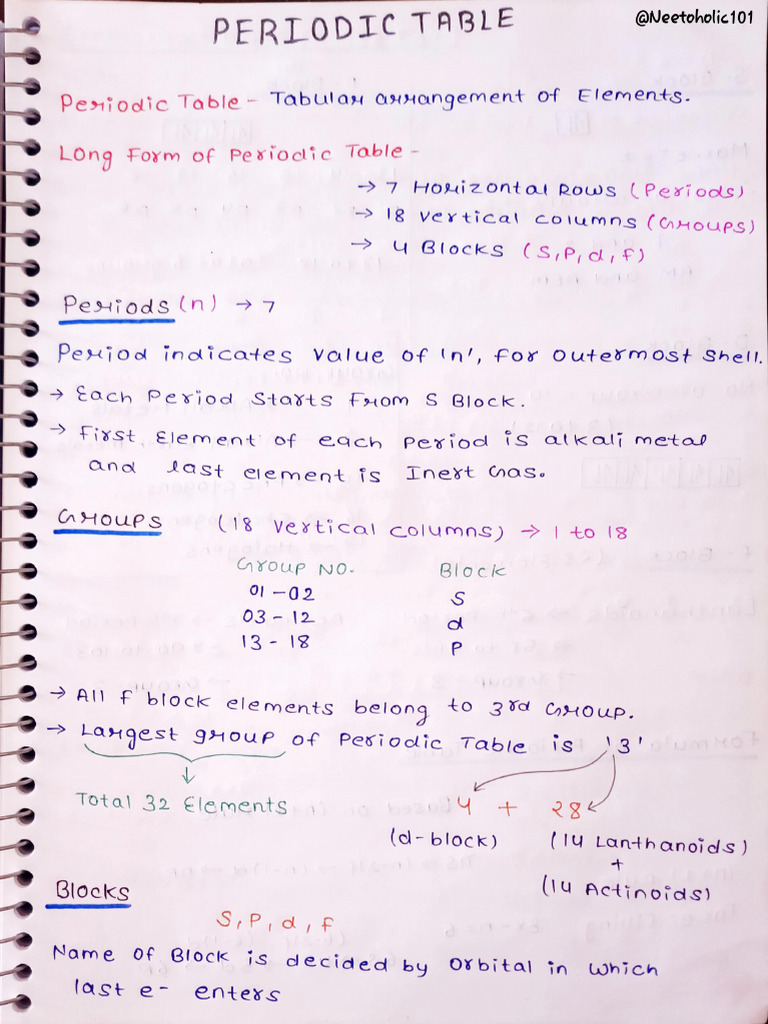 @Neetoholic101
PERIODIC TABLE
Periodic Table - Tabular arrangement of Elements.
Long Form of Periodic Table -
→ 7 Horizontal Rows (Periods)
→ 18 vertical columns (Groups)
→ 4 Blocks (S, P, d, f)
Periods (n) → 7
Period indicates value of 'n', for outermost shell.
→ Each Period starts from S Block.
→ First Element of each Period is alkali metal
and last element is Inert Gas.
Groups (18 vertical columns) → 1 to 18
Group No. Block
01-02 S
03-12 d
13-18 P
→ All f block elements belong to 3rd Group.
→ Largest group of Periodic Table is '3'
Total 32 Elements 4 + 28
(d-block) (14 Lanthanoids)
+
(14 Actinoids)
Blocks
S, P, d, f
Name of Block is decided by orbital in which
last e- enters